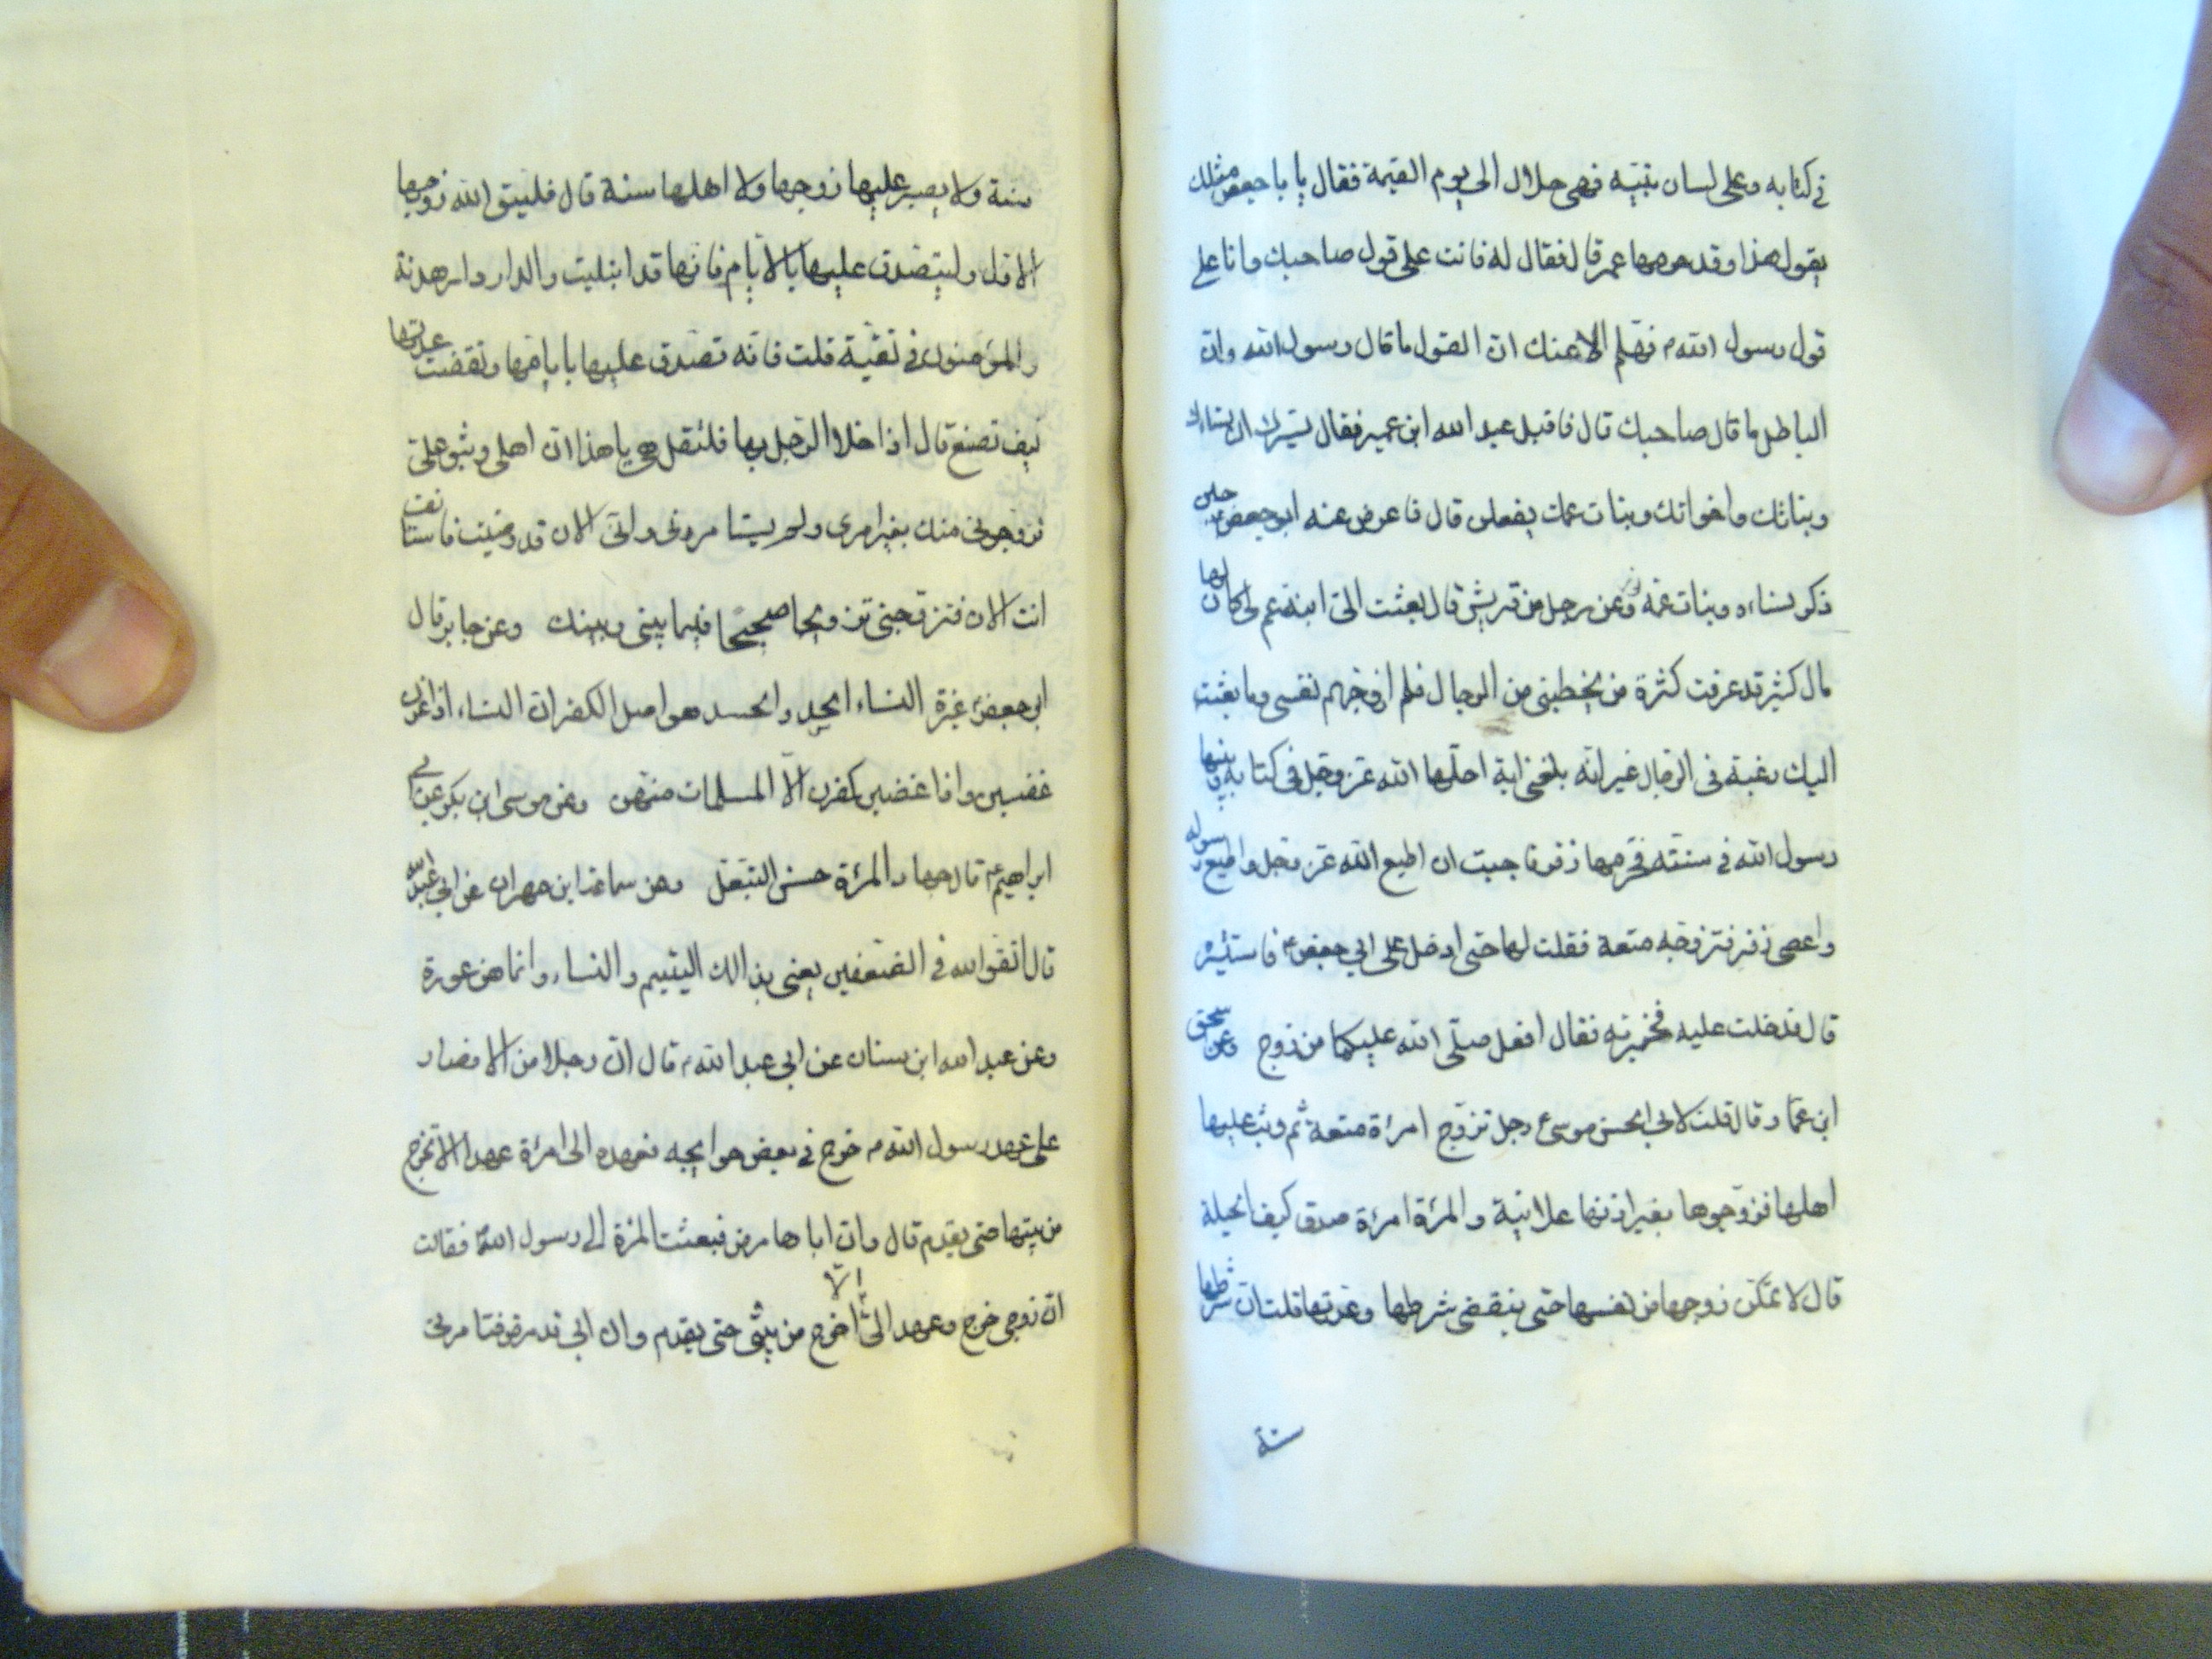 في كتابه وعلى لسان نبيّه فهى حلال الى يوم القيمة فقال يا با جعفر مثلك
يقول هذا وقد حرمها عمر قال فقال له فانت على قول صاحبك وانا على
قول رسول الله م فهلم الاعنك ان القول ما قال رسول الله وان
الباطل ما قال صاحبك قال فاقبل عبد الله ابن عمير فقال يسّرك ان نساءك
وبناتك واخواتك وبنات عمك يفعلن قال فاعرض عنه ابو جعفر حين
ذكر نساءه وبنات عمه وعن رجل من قريش قال بعثت الىّ ابنة عم لى كان لها
مال كثير قد عرفت كثرة من يخطبنى من الرجال فلم ازوجهم نفسى وما بعثت
اليك رغبة فى الرجال غير انه بلغنى انه احلّها الله عزّ وجل فى كتابه وبينها
رسول الله فى سننته فحّرمها زفر فاحببت ان اطيع الله عزّ وجل واطيع رسوله
واعصى زفر فتزوجه متعة فقلت لها حتى ادخل على ابي جعفر ع فاستشيره
قال فدخلت عليه فخبرته فقال افعل صلّى الله عليكما من زوج وعن سحق
ابن عمّار قال قلت لابي الحسن موسى ع رجل تزوّج امرءة متعة ثم وثب عليها
اهلها فزوّجوها بغير اذنها علانية والمرءة امرءة صدق كيف الحيلة
قال لا تمكّن زوجها من نفسها حتى ينقضى شرطها وعدتها قلت ان شرطها
سنة
سنة ولا يصبر عليها زوجها ولا اهلها سنة قال فليتق الله زوجها
الاول وليتصدق عليها بالايام فانها قد ابتليت والدار دار هدنة
والمؤمنون فى تقيّة قلت فانه تصدق عليها بايامها ونقضت عدتها
كيف تصنع قال اذا خلا الرجل بها فلتقل هى يا هذا ان اهلى وثبو علىّ
فزوجونى منك بغير امرى ولم يستامرونى وانى الان قد رضيت فاستانف
انت الان فتزوجنى تزويجا صحيحًا فيما بينى وبينك وعن جابر قال
ابى جعفر ع غيرة النساء الحسد والحسد هو اصل الكفر ان النساء اذا غرن
غضبين واذا غضبين كفرن الّا المسلمات منهن وعن موسى ابن بكر عن ابي
ابراهيم ع قال جهاد المرءة حسن التبعّل وعن سماعة ابن مهران عن ابي عبد الله
قال اتقوا الله فى الضعفين يعنى بذالك اليتيم والنساء وانما هن عورة
وعن عبد الله ابن سنان عن ابي عبد الله ع قال ان رجلا من الانصار
على عهد رسول الله م خرج فى بعض حوايجه فعهده الى امرءة عهدا الا تخرج
من بيتها حتى يقدم قال وان اباها مرض فبعثت المرءة الى رسول الله ص فقالت
انّ زوجى خرج وعهد الىّ الّا اخرج من بيتى حتى يقدم وان ابى قد مرض فتامرنى